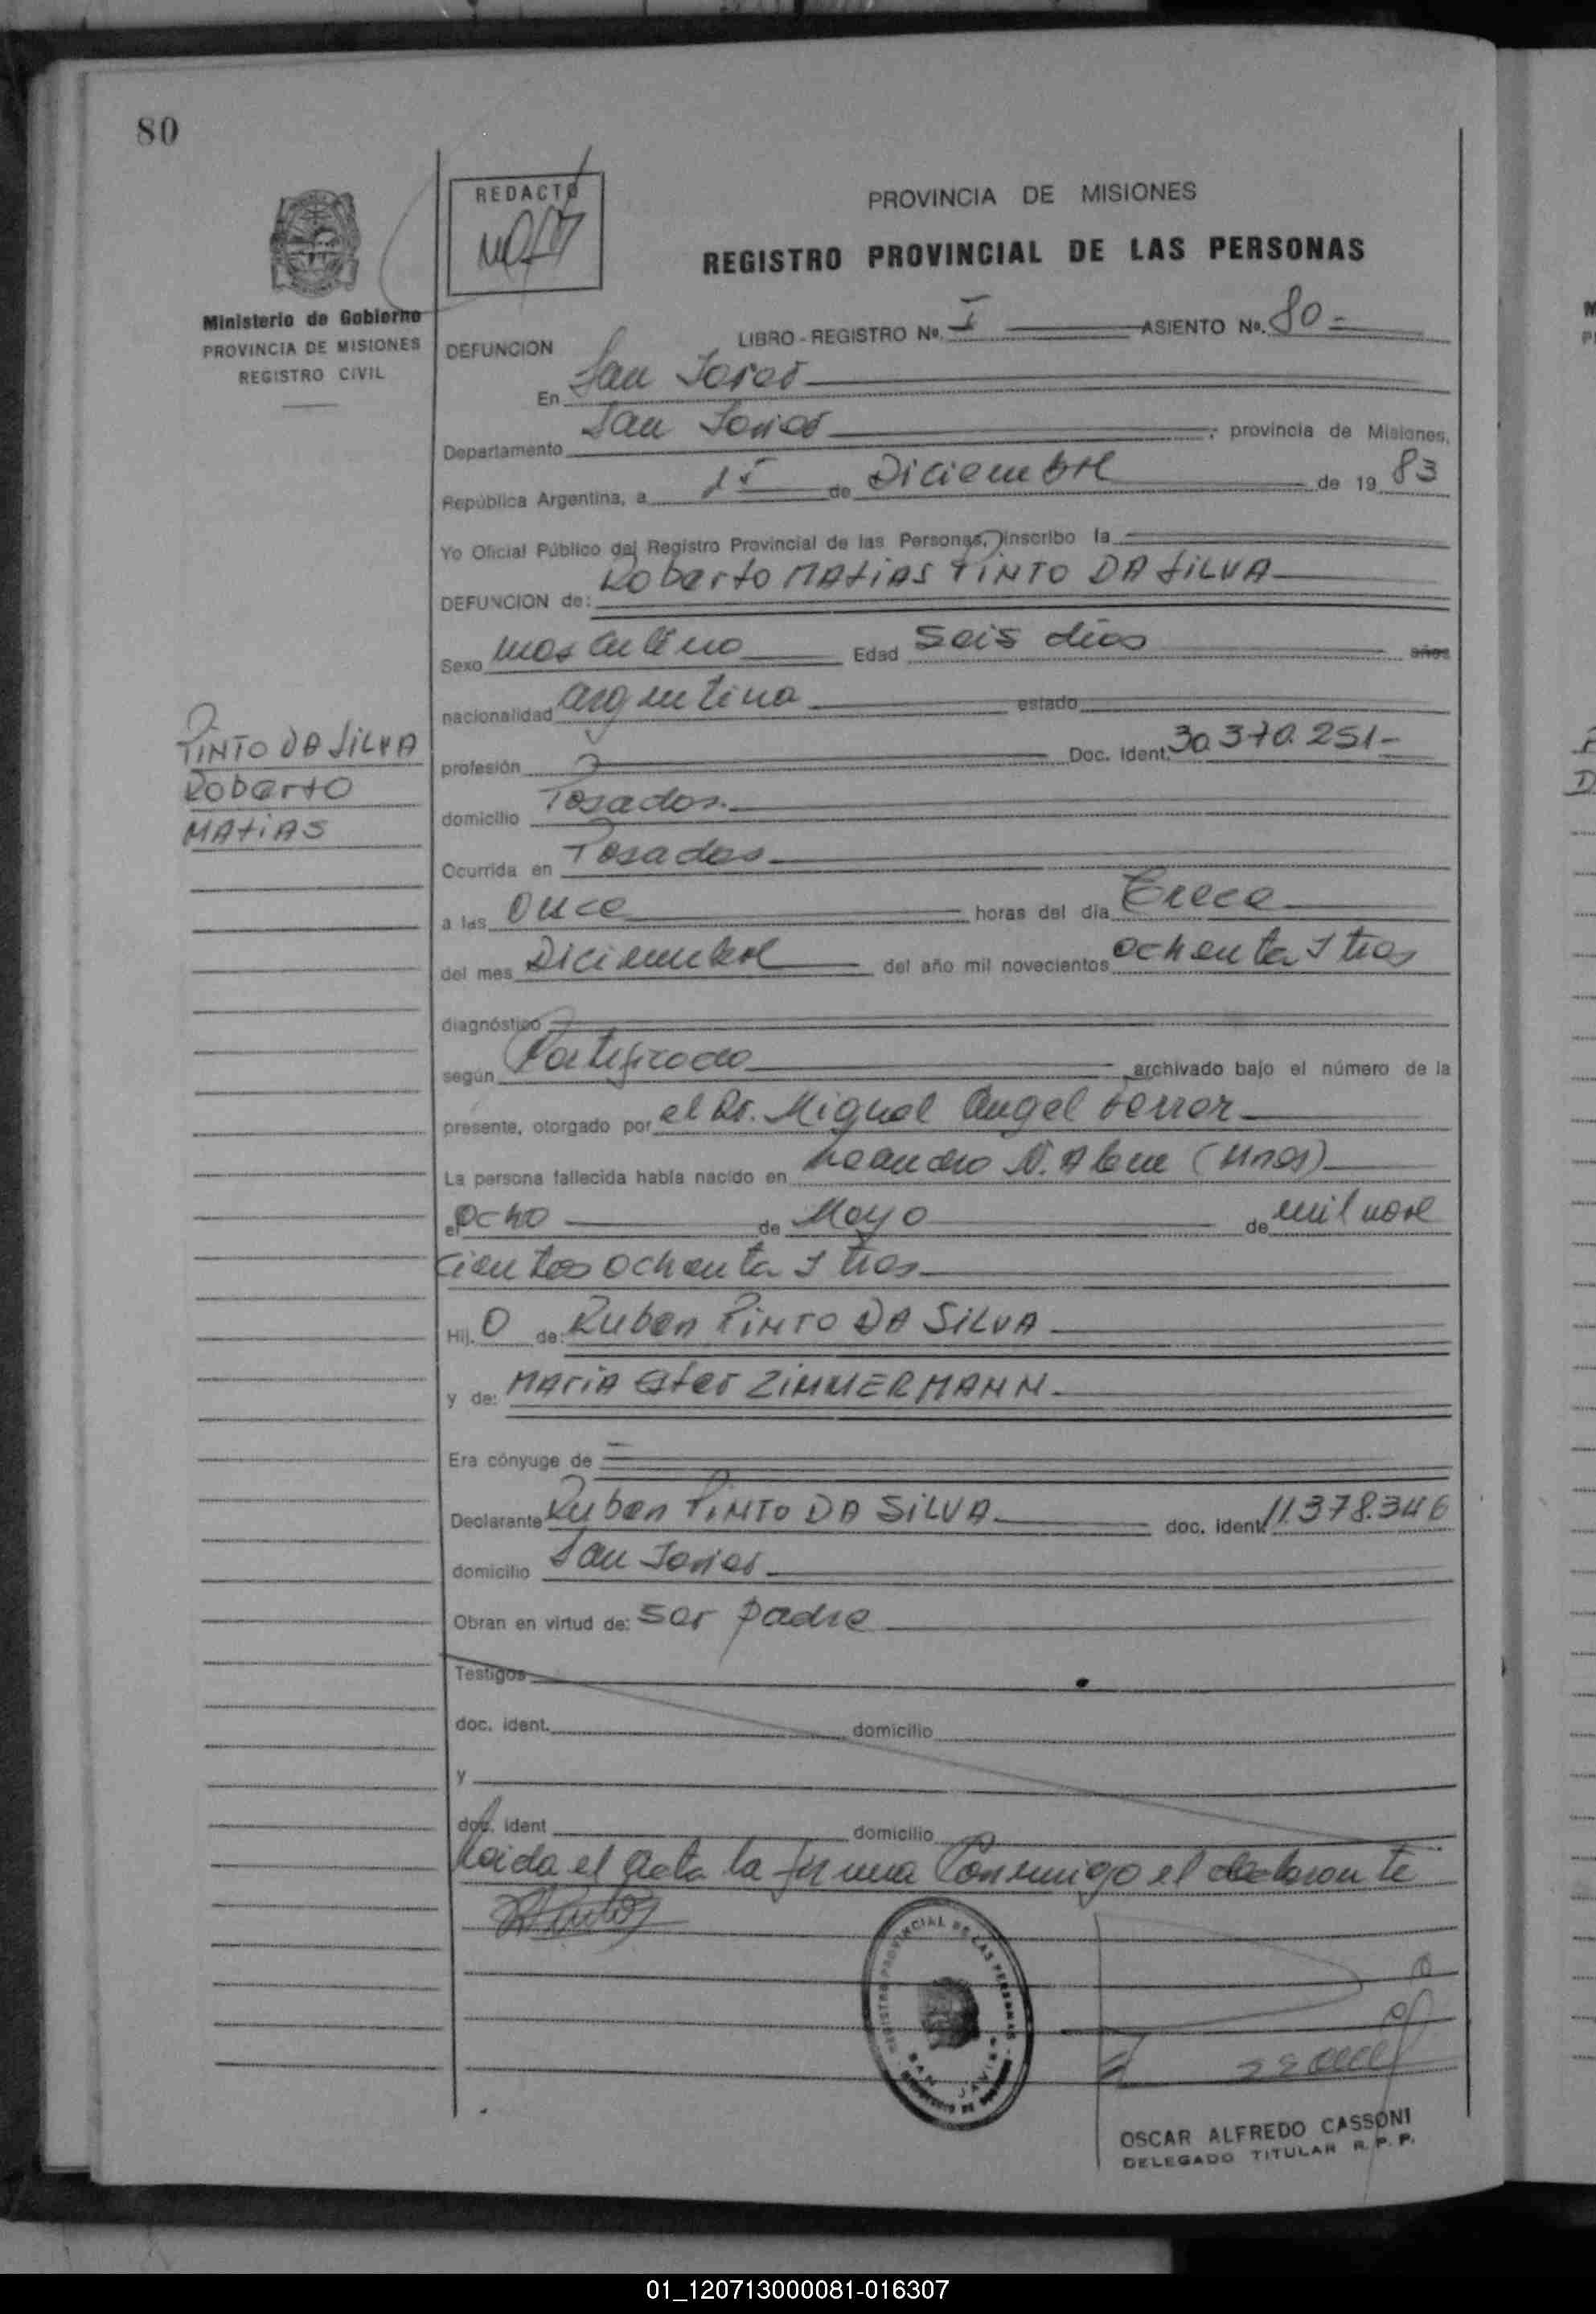 80
REDACTO
PROVINCIA DE MISIONES
REGISTRO PROVINCIAL DE LAS PERSONAS
Ministerio de Gobierno
PROVINCIA DE MISIONES
REGISTRO CIVIL
LIBRO - REGISTRO No. I ASIENTO No. 80 -
DEFUNCION
En San Javier
Departamento San Javier ; provincia de Misiones,
República Argentina, a de Diciembre de 19 83
Yo Oficial Público del Registro Provincial de las Personas, inscribo la
DEFUNCION de: Roberto MAtiAS PiNTO DA SiLVA
Sexo masculino Edad seis días años
nacionalidad argentina estado
PiNTO DA SiLVA
Roberto
MAtiAS
profesión Doc. Ident. 30.370.251-
domicilio Posadas.
Ocurrida en Posadas
a las Once horas del día trece
del mes Diciembre del año mil novecientos ochenta y tres
diagnóstico
según Certificado archivado bajo el número de la
presente, otorgado por el Dr. Miguel Angel Ferrer
La persona fallecida había nacido en Leandro N. Alem (Mnes)
el Ocho de Mayo de mil nove
cientos ochenta y tres
Hij. O de: Ruben PiNTO DA SiLVA
y de: MAriA Ester ZiMMERMANN.
Era cónyuge de
Declarante Ruben PiNTO DA SiLVA doc. ident. 11.378.346
domicilio San Javier
Obran en virtud de: ser padre
Testigos
doc. ident. domicilio
y
doc. ident domicilio
Leida el acta la firma Conmigo el declarante
REGISTRO PROVINCIAL DE LAS PERSONAS
SAN JAVIER
OSCAR ALFREDO CASSONI
DELEGADO TITULAR R. P. P.
01_120713000081-016307